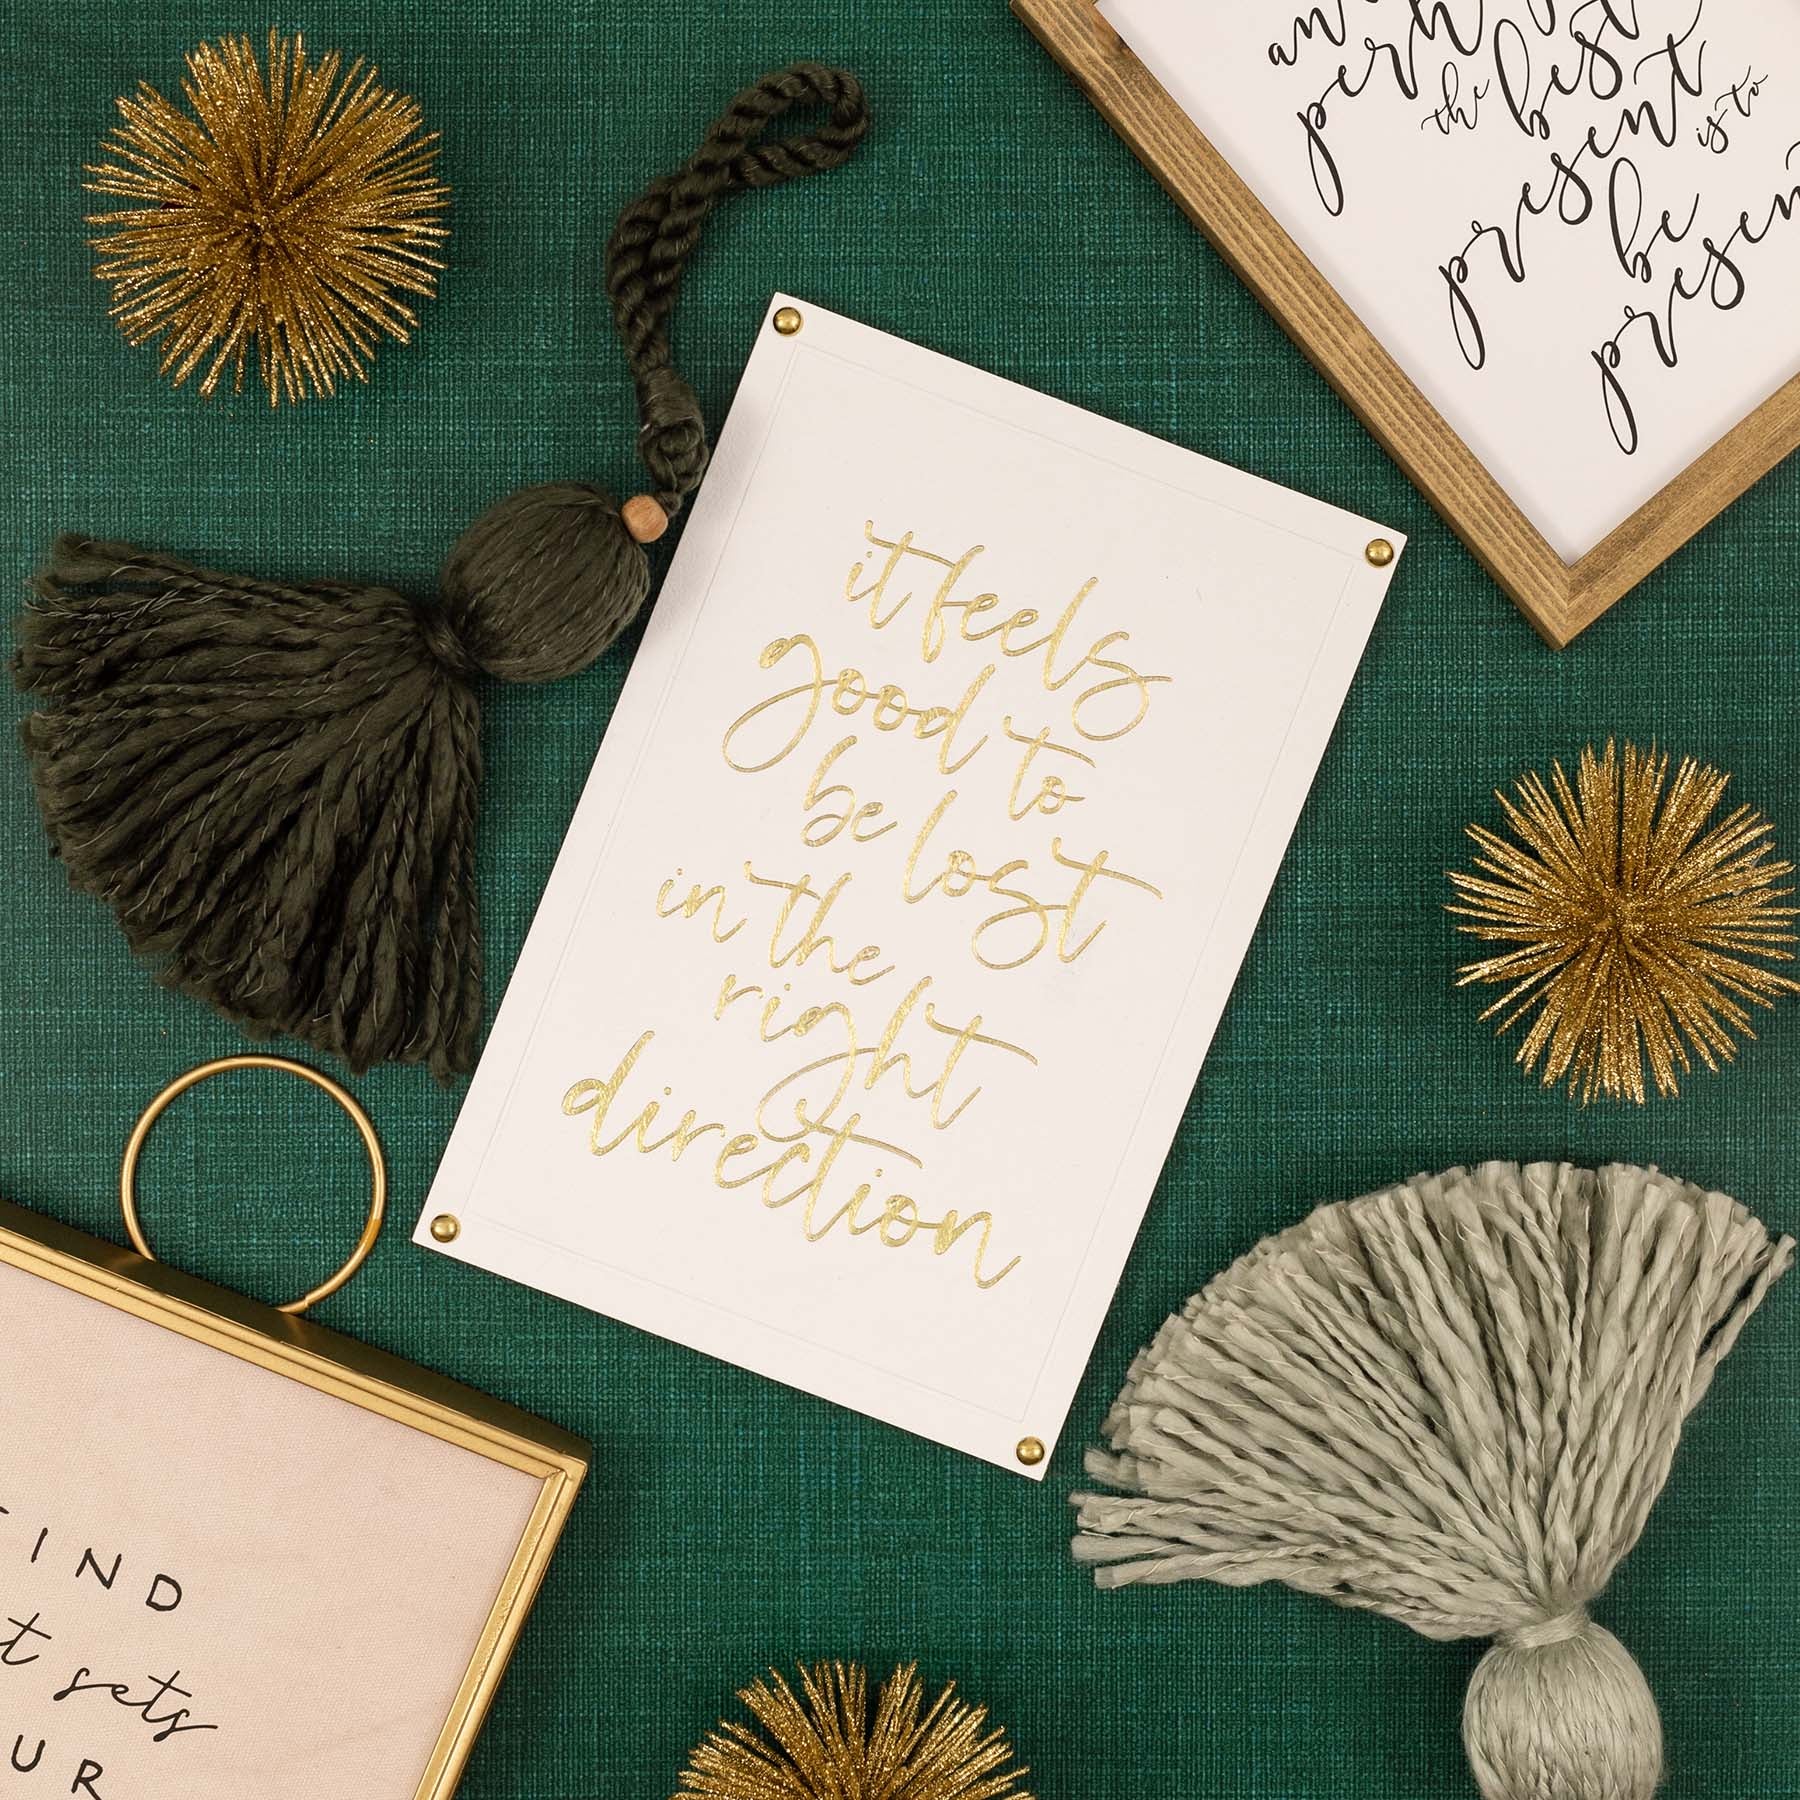 perh
the best
present is to
be
present
it feels
good to
be lost
in the
right
direction
IND
t sets
UR